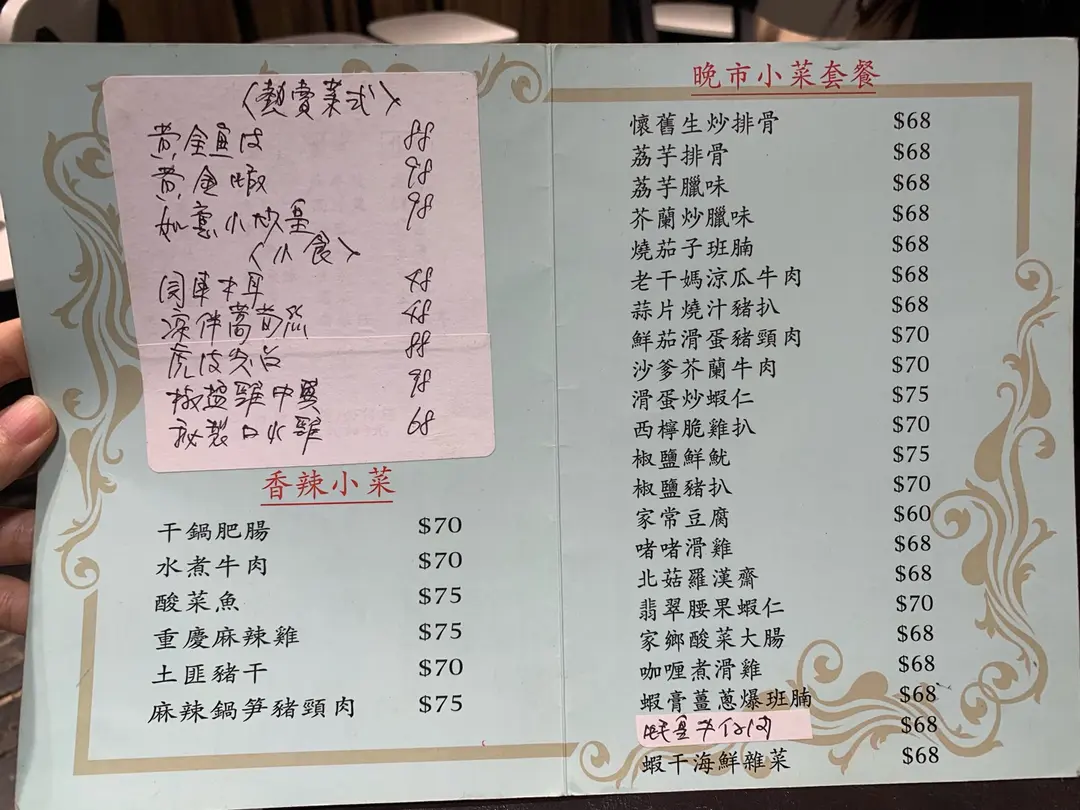 〈熱賣菜式〉
黃金魚皮 88
黃金蝦 98
如意小炒皇 98
〈小食〉
木耳 48
涼伴萵荀絲 48
虎皮尖⼝ 88
椒盬雞中翼 98
秘製口水雞 68
香辣小菜
干鍋肥腸 $70
水煮牛肉 $70
酸菜魚 $75
重慶麻辣雞 $75
土匪豬干 $70
麻辣鍋笋豬頸肉 $75
晚市小菜套餐
懷舊生炒排骨 $68
荔芋排骨 $68
荔芋臘味 $68
芥蘭炒臘味 $68
燒茄子班腩 $68
老干媽涼瓜牛肉 $68
蒜片燒汁豬扒 $68
鮮茄滑蛋豬頸肉 $70
沙爹芥蘭牛肉 $70
滑蛋炒蝦仁 $75
西檸脆雞扒 $70
椒鹽鮮魷 $75
椒鹽豬扒 $70
家常豆腐 $60
啫啫滑雞 $68
北菇羅漢齋 $68
翡翠腰果蝦仁 $70
家鄉酸菜大腸 $68
咖喱煮滑雞 $68
蝦膏薑蔥爆班腩 $68
$68
蝦干海鮮雜菜 $68